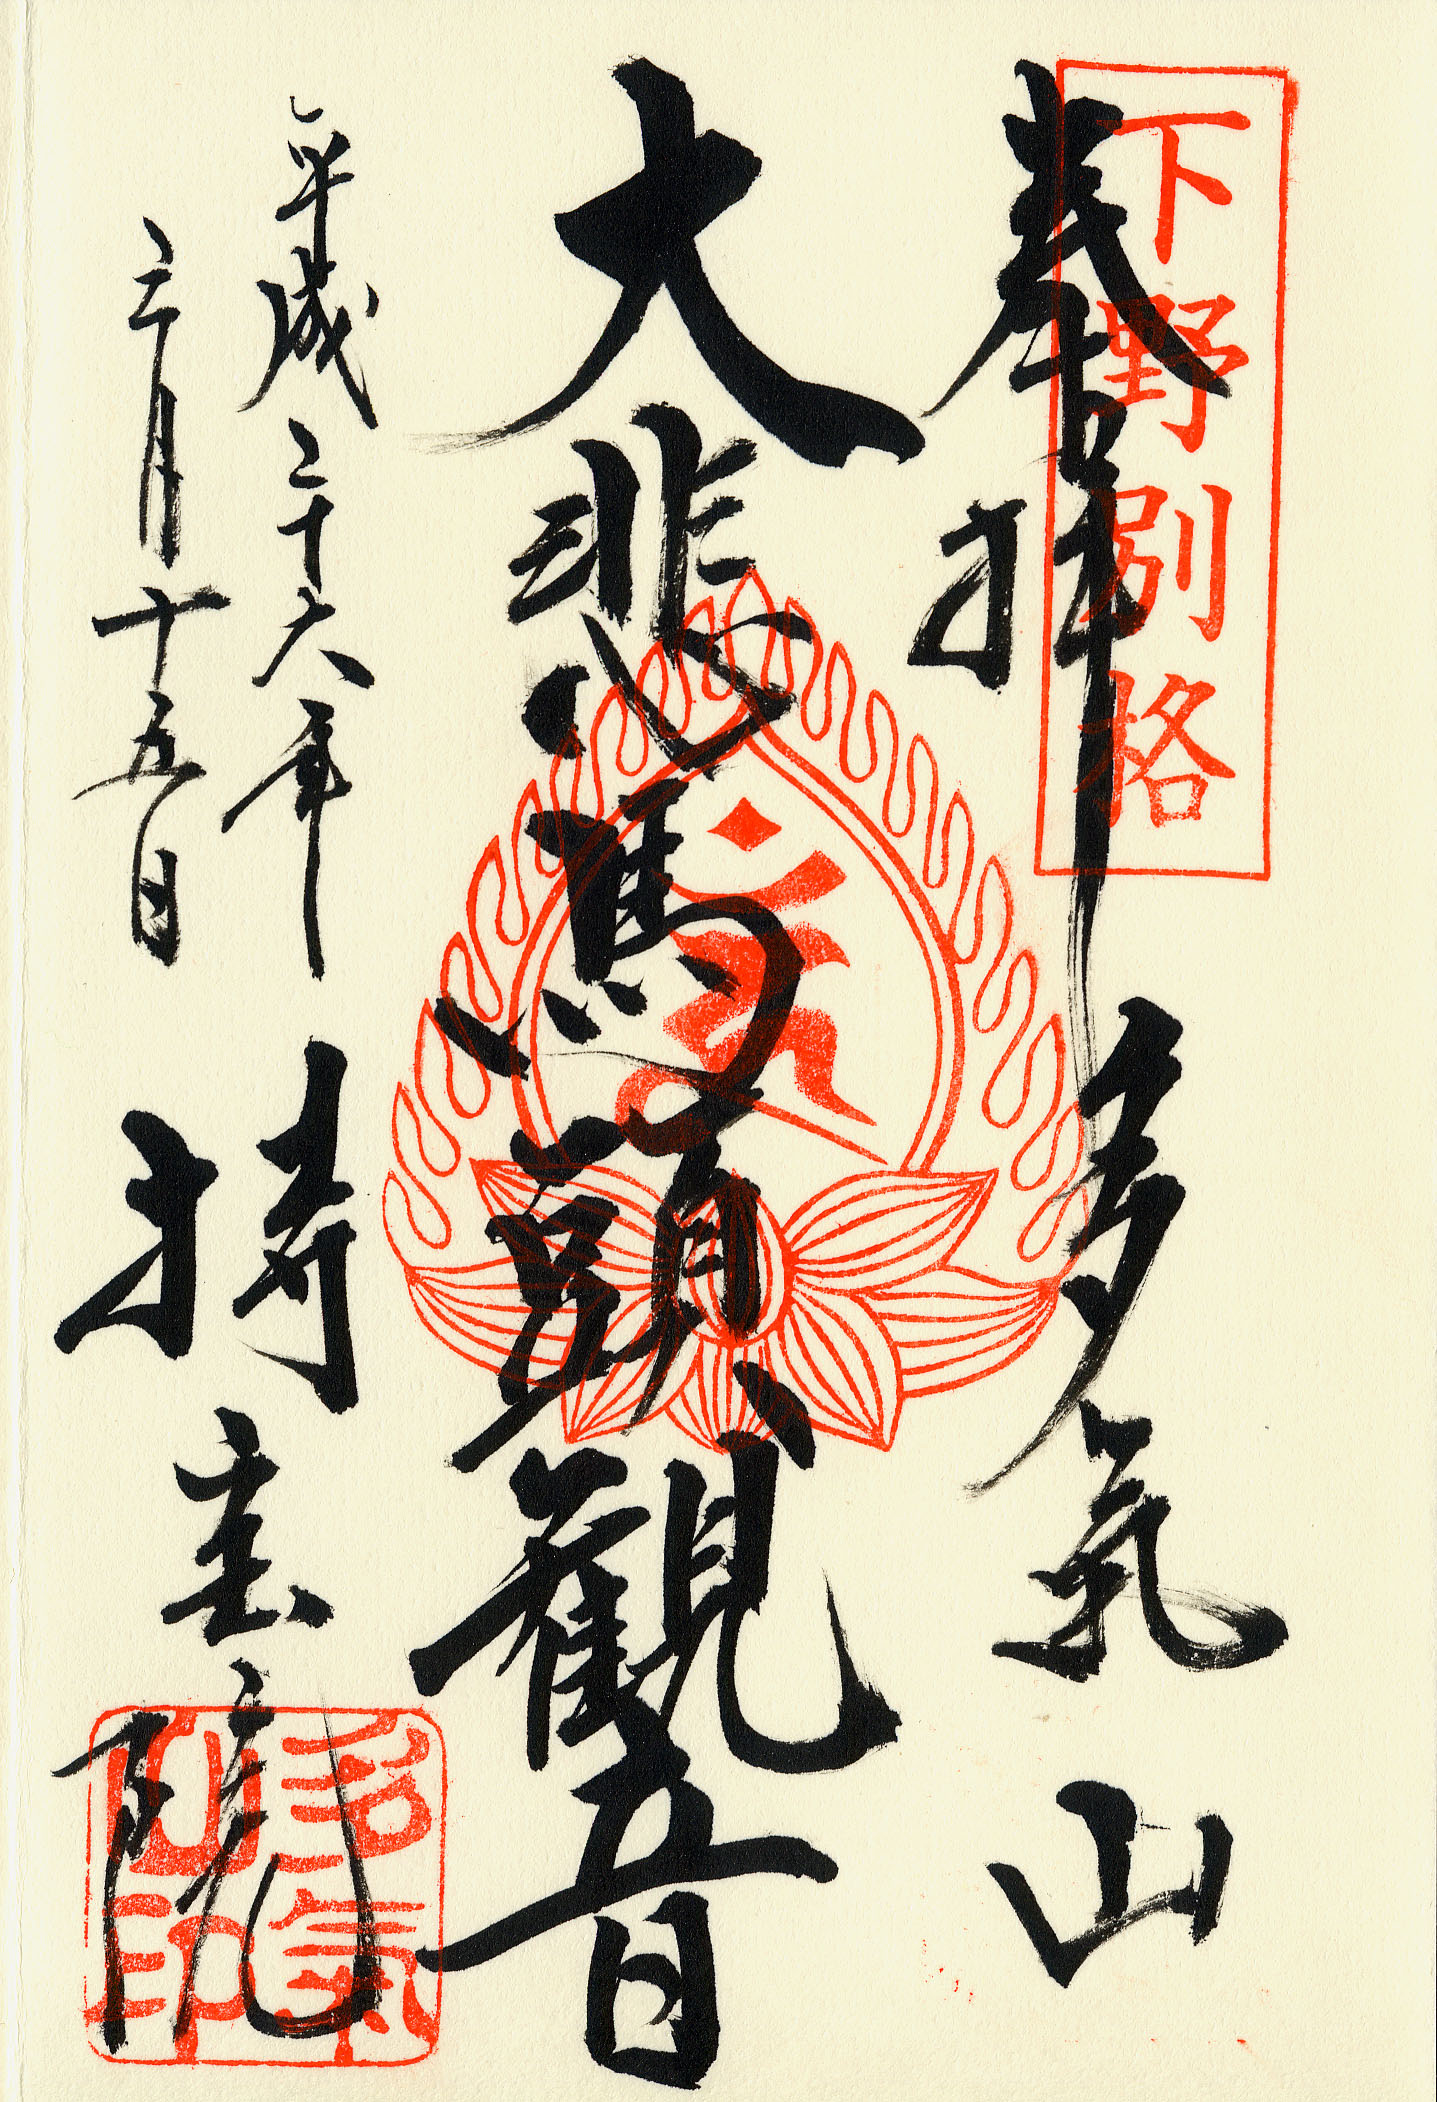 下野別格
奉拝 多氣山
大悲馬頭観音
平成二十六年
三月十五日
持宝院
多氣山印